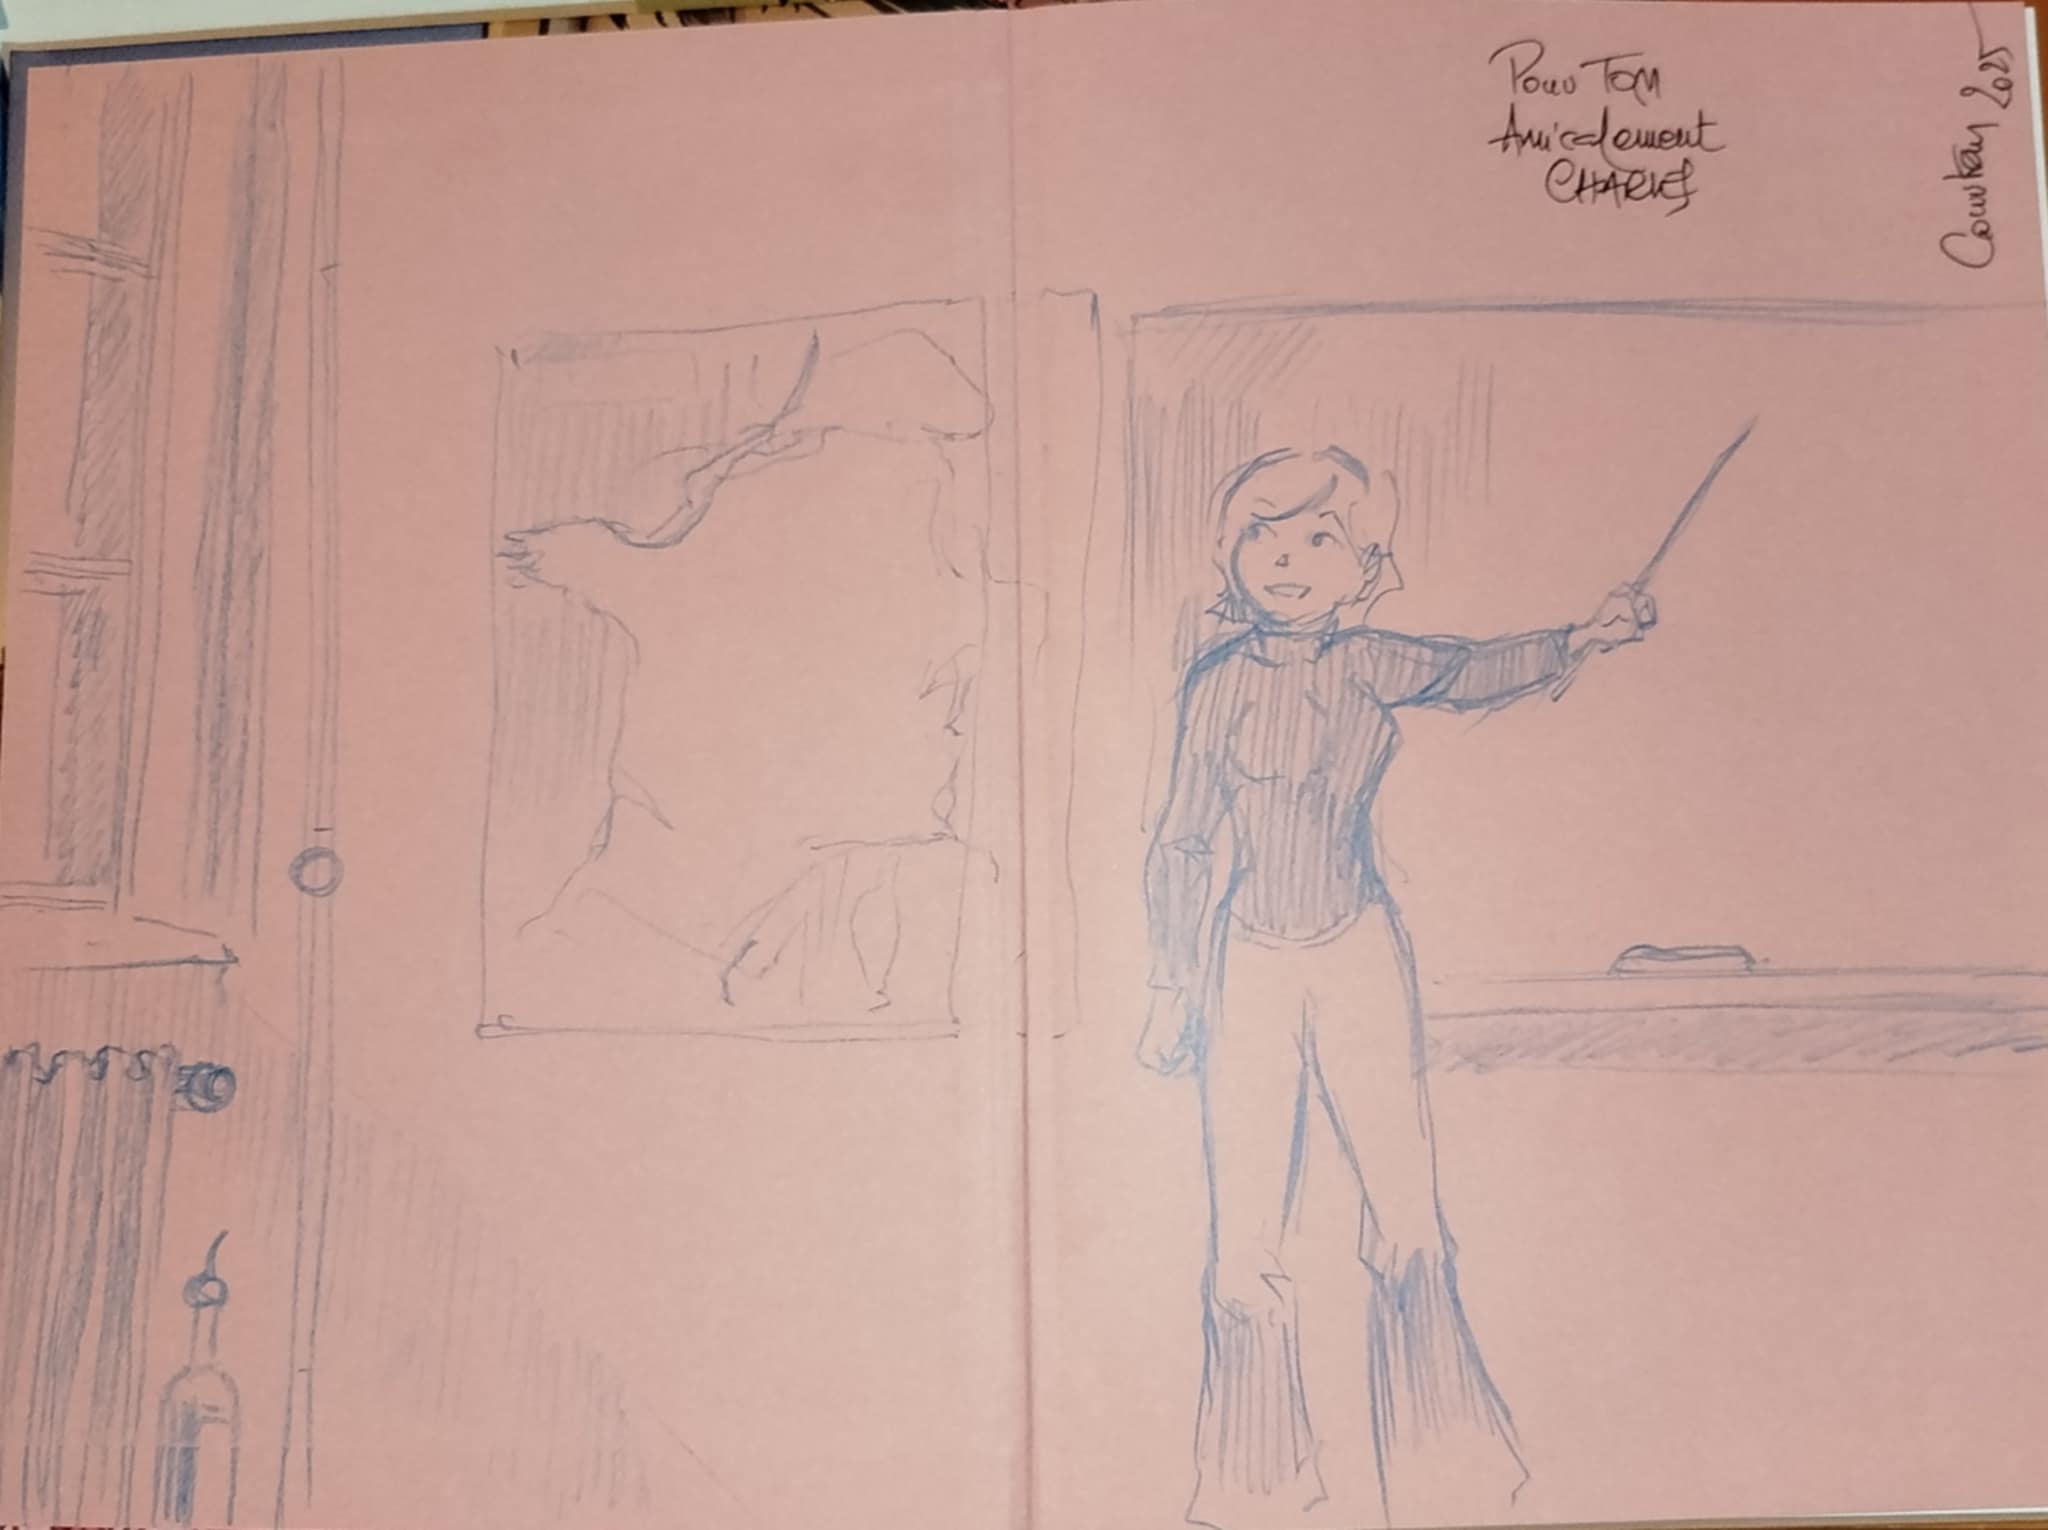 Pour Tom
Amicalement
CHARLES
2025